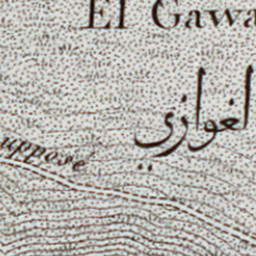 El Gawa
الغوازي
upposé